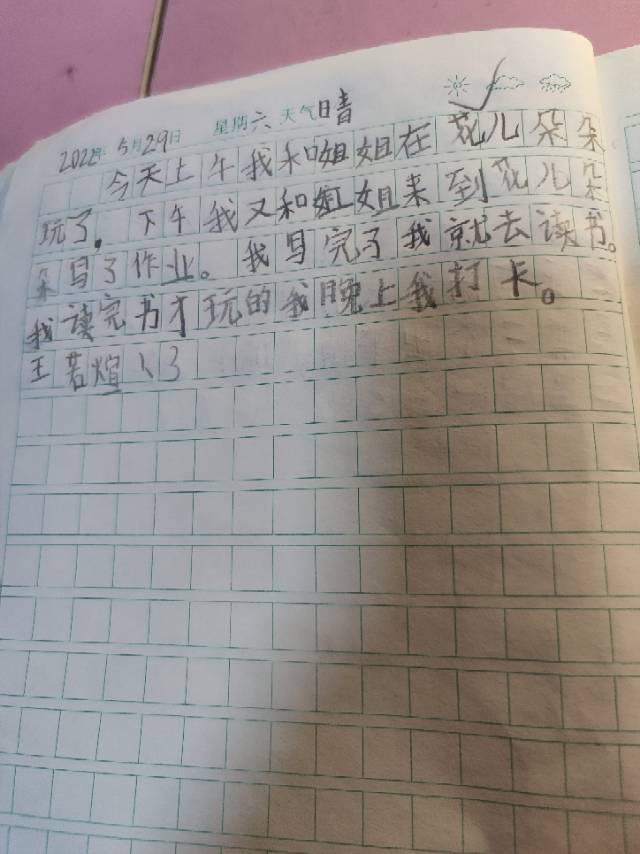 2022年 5月29日 星期六 天气晴
今天上午我和姐姐在花儿朵朵
玩了。下午我又和姐来到花儿朵
朵写了作业。我写完了我就去读书。
我读完书才玩的我晚上我打卡。
王若煊 13